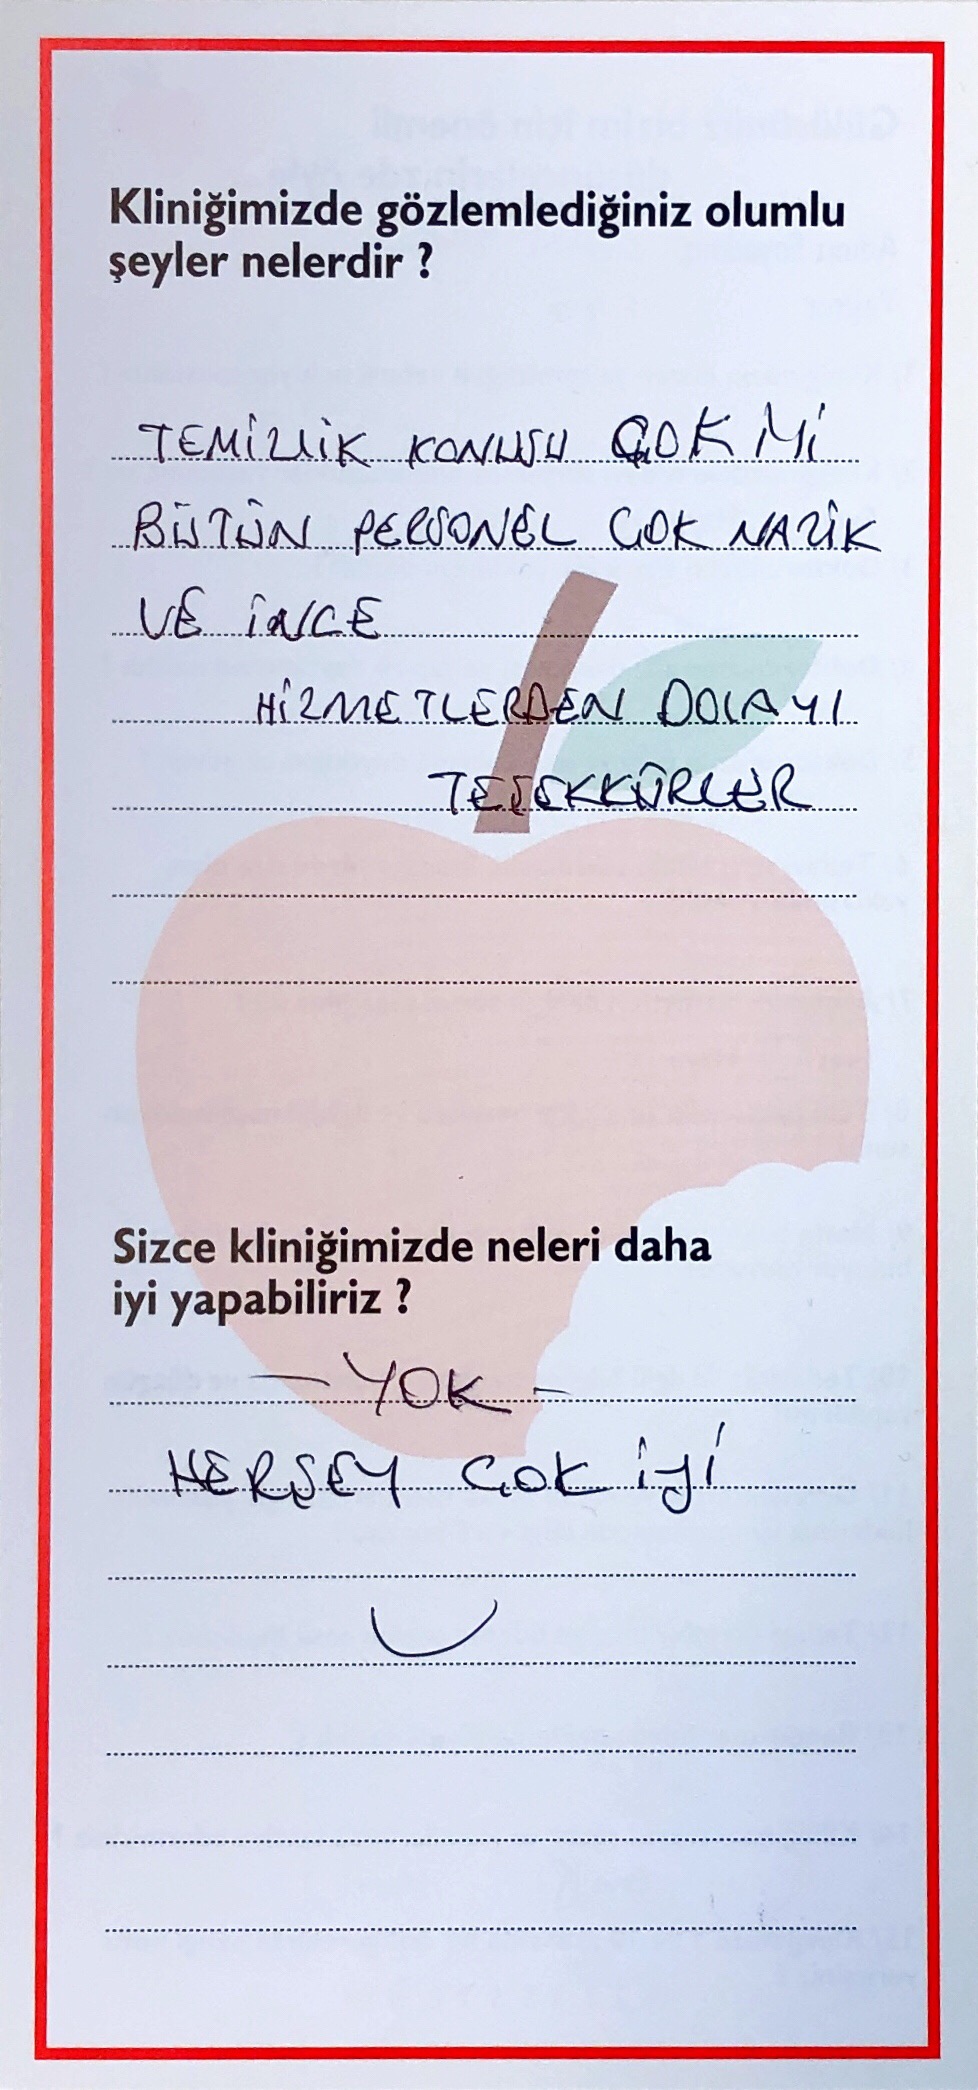 Kliniğimizde gözlemlediğiniz olumlu
şeyler nelerdir ?
TEMİZLİK KONUSU ÇOK İYİ
BÜTÜN PERSONEL ÇOK NAZİK
VE İNCE
HİZMETLERDEN DOLAYI
TEŞEKKÜRLER
Sizce kliniğimizde neleri daha
iyi yapabiliriz ?
— YOK -
HERŞEY ÇOK İYİ